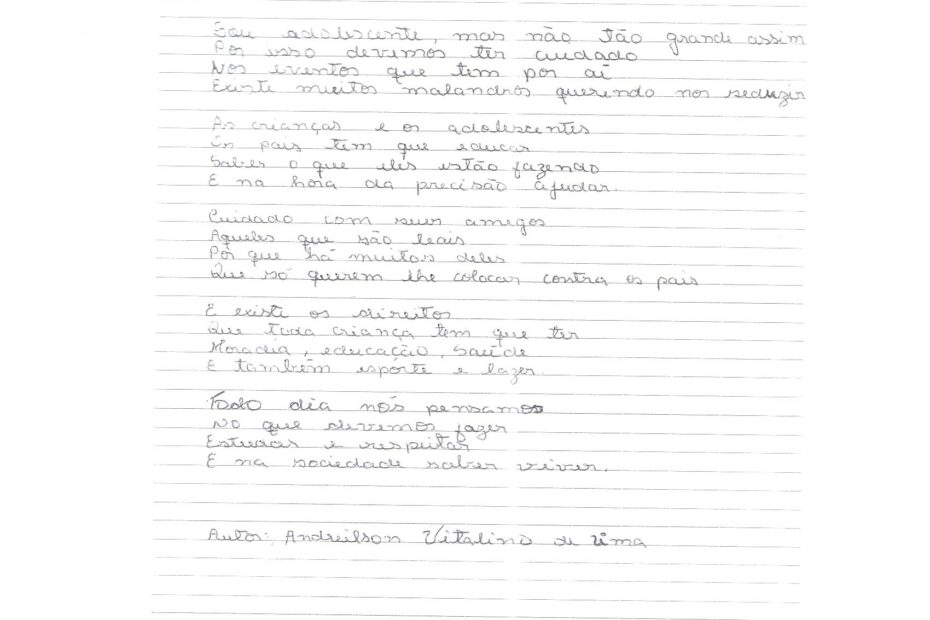 Sou adolescente, mas não tão grande assim
Por isso devemos ter cuidado
Nos eventos que tem por aí
Existe muitos malandros querendo nos seduzir
As crianças e os adolescentes
Os pais tem que educar
Saber o que eles estão fazendo
E na hora da precisão ajudar.
Cuidado com seus amigos
Aqueles que são leais
Por que há muitos deles
Que só querem lhe colocar contra os pais
E existe os direitos
Que toda criança tem que ter
Moradia, educação, saúde
E também esporte e lazer.
Todo dia nós pensamos
No que devemos fazer
Estudar e respeitar
E na sociedade saber viver.
Autor: Andreilson Vitalino de Lima